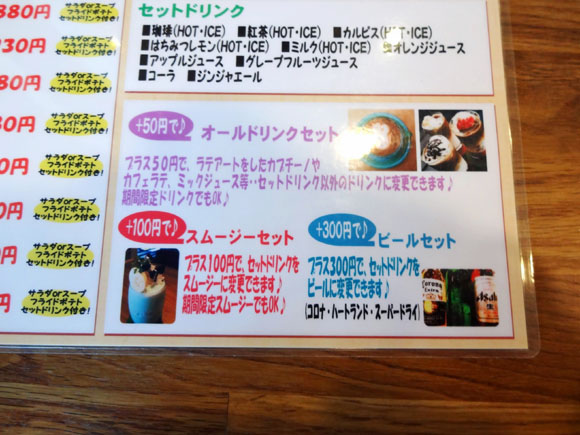 380円
サラダorスープ
フライドポテト
セットドリンク付き!
930円
サラダorスープ
フライドポテト
セットドリンク付き!
80円
サラダorスープ
フライドポテト
セットドリンク付き!
80円
サラダorスープ
フライドポテト
セットドリンク付き!
円
サラダorスープ
フライドポテト
セットドリンク付き!
円
サラダorスープ
フライドポテト
セットドリンク付き!
円
サラダorスープ
フライドポテト
セットドリンク付き!
円
サラダorスープ
フライドポテト
セットドリンク付き!
セットドリンク
■珈琲(HOT・ICE) ■紅茶(HOT・ICE) ■カルピス(HOT・ICE)
■はちみつレモン(HOT・ICE) ■ミルク(HOT・ICE) ■オレンジジュース
■アップルジュース ■グレープフルーツジュース
■コーラ ■ジンジャエール
+50円で♪ オールドリンクセット
プラス50円で、ラテアートをしたカプチーノや
カフェラテ、ミックジュース等・・セットドリンク以外のドリンクに変更できます♪
期間限定ドリンクでもOK♪
+100円で♪ スムージーセット
プラス100円で、セットドリンクを
スムージーに変更できます♪
期間限定スムージーでもOK♪
+300円で♪ ビールセット
プラス300円で、セットドリンクを
ビールに変更できます♪
(コロナ・ハートランド・スーパードライ)
Corona
Extra
Asahi